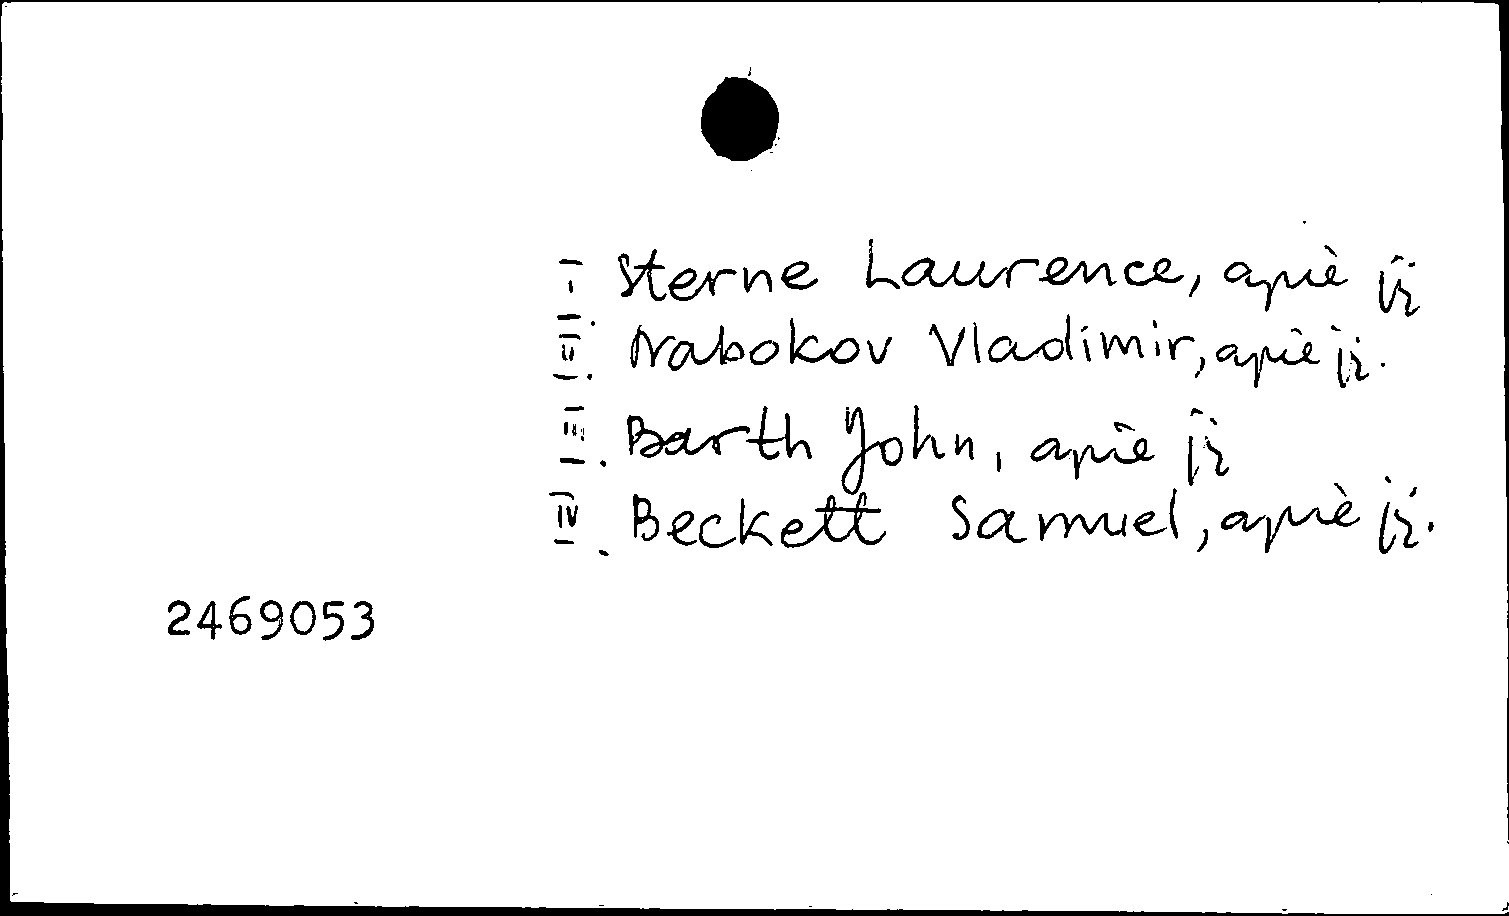 I. Sterne Laurence, apie jį
II. Nabokov Vladimir, apie jį.
III. Barth John, apie jį
IV. Beckett Samuel, apie jį.
2469053